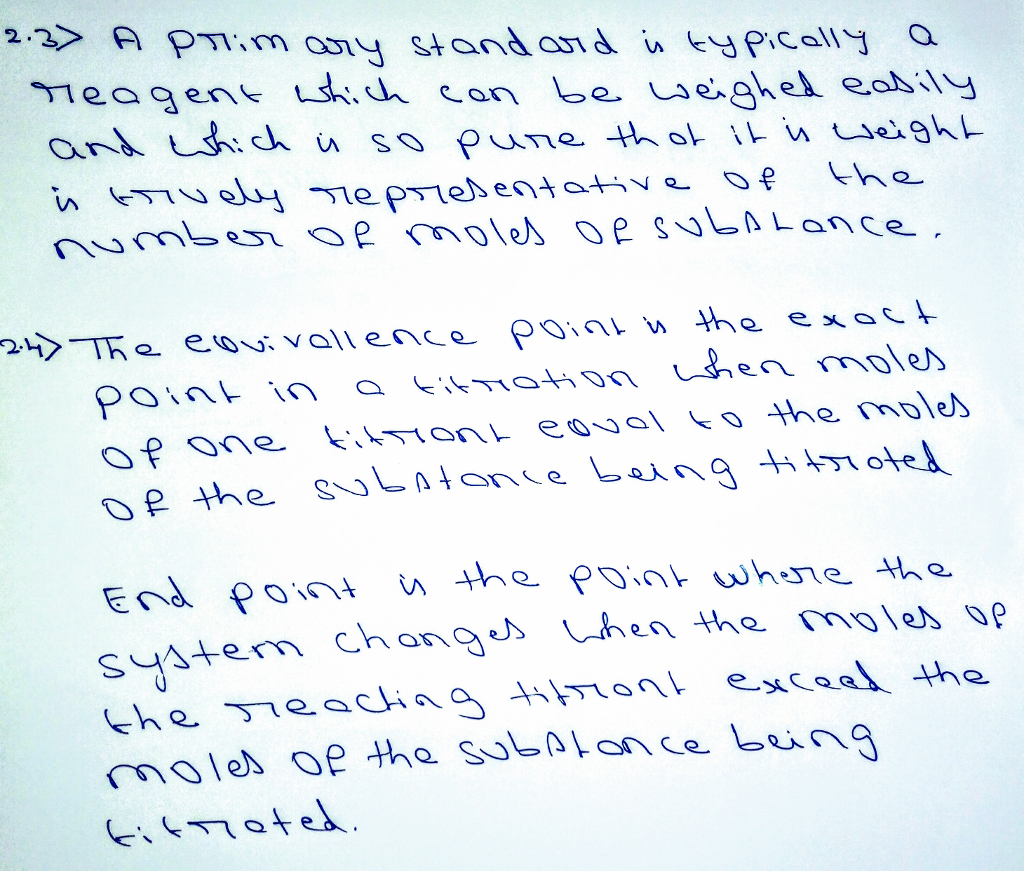 2.3> A primary standard is typically a
reagent which can be weighed easily
and which is so pure that it is weight
is truely representative of the
number of moles of substance.
2.4> The equivallence point is the exact
point in a titration when moles
of one titrant equal to the moles
of the substance being titrated
End point is the point where the
system changes when the moles of
the reacting titrant exceed the
moles of the substance being
titrated.